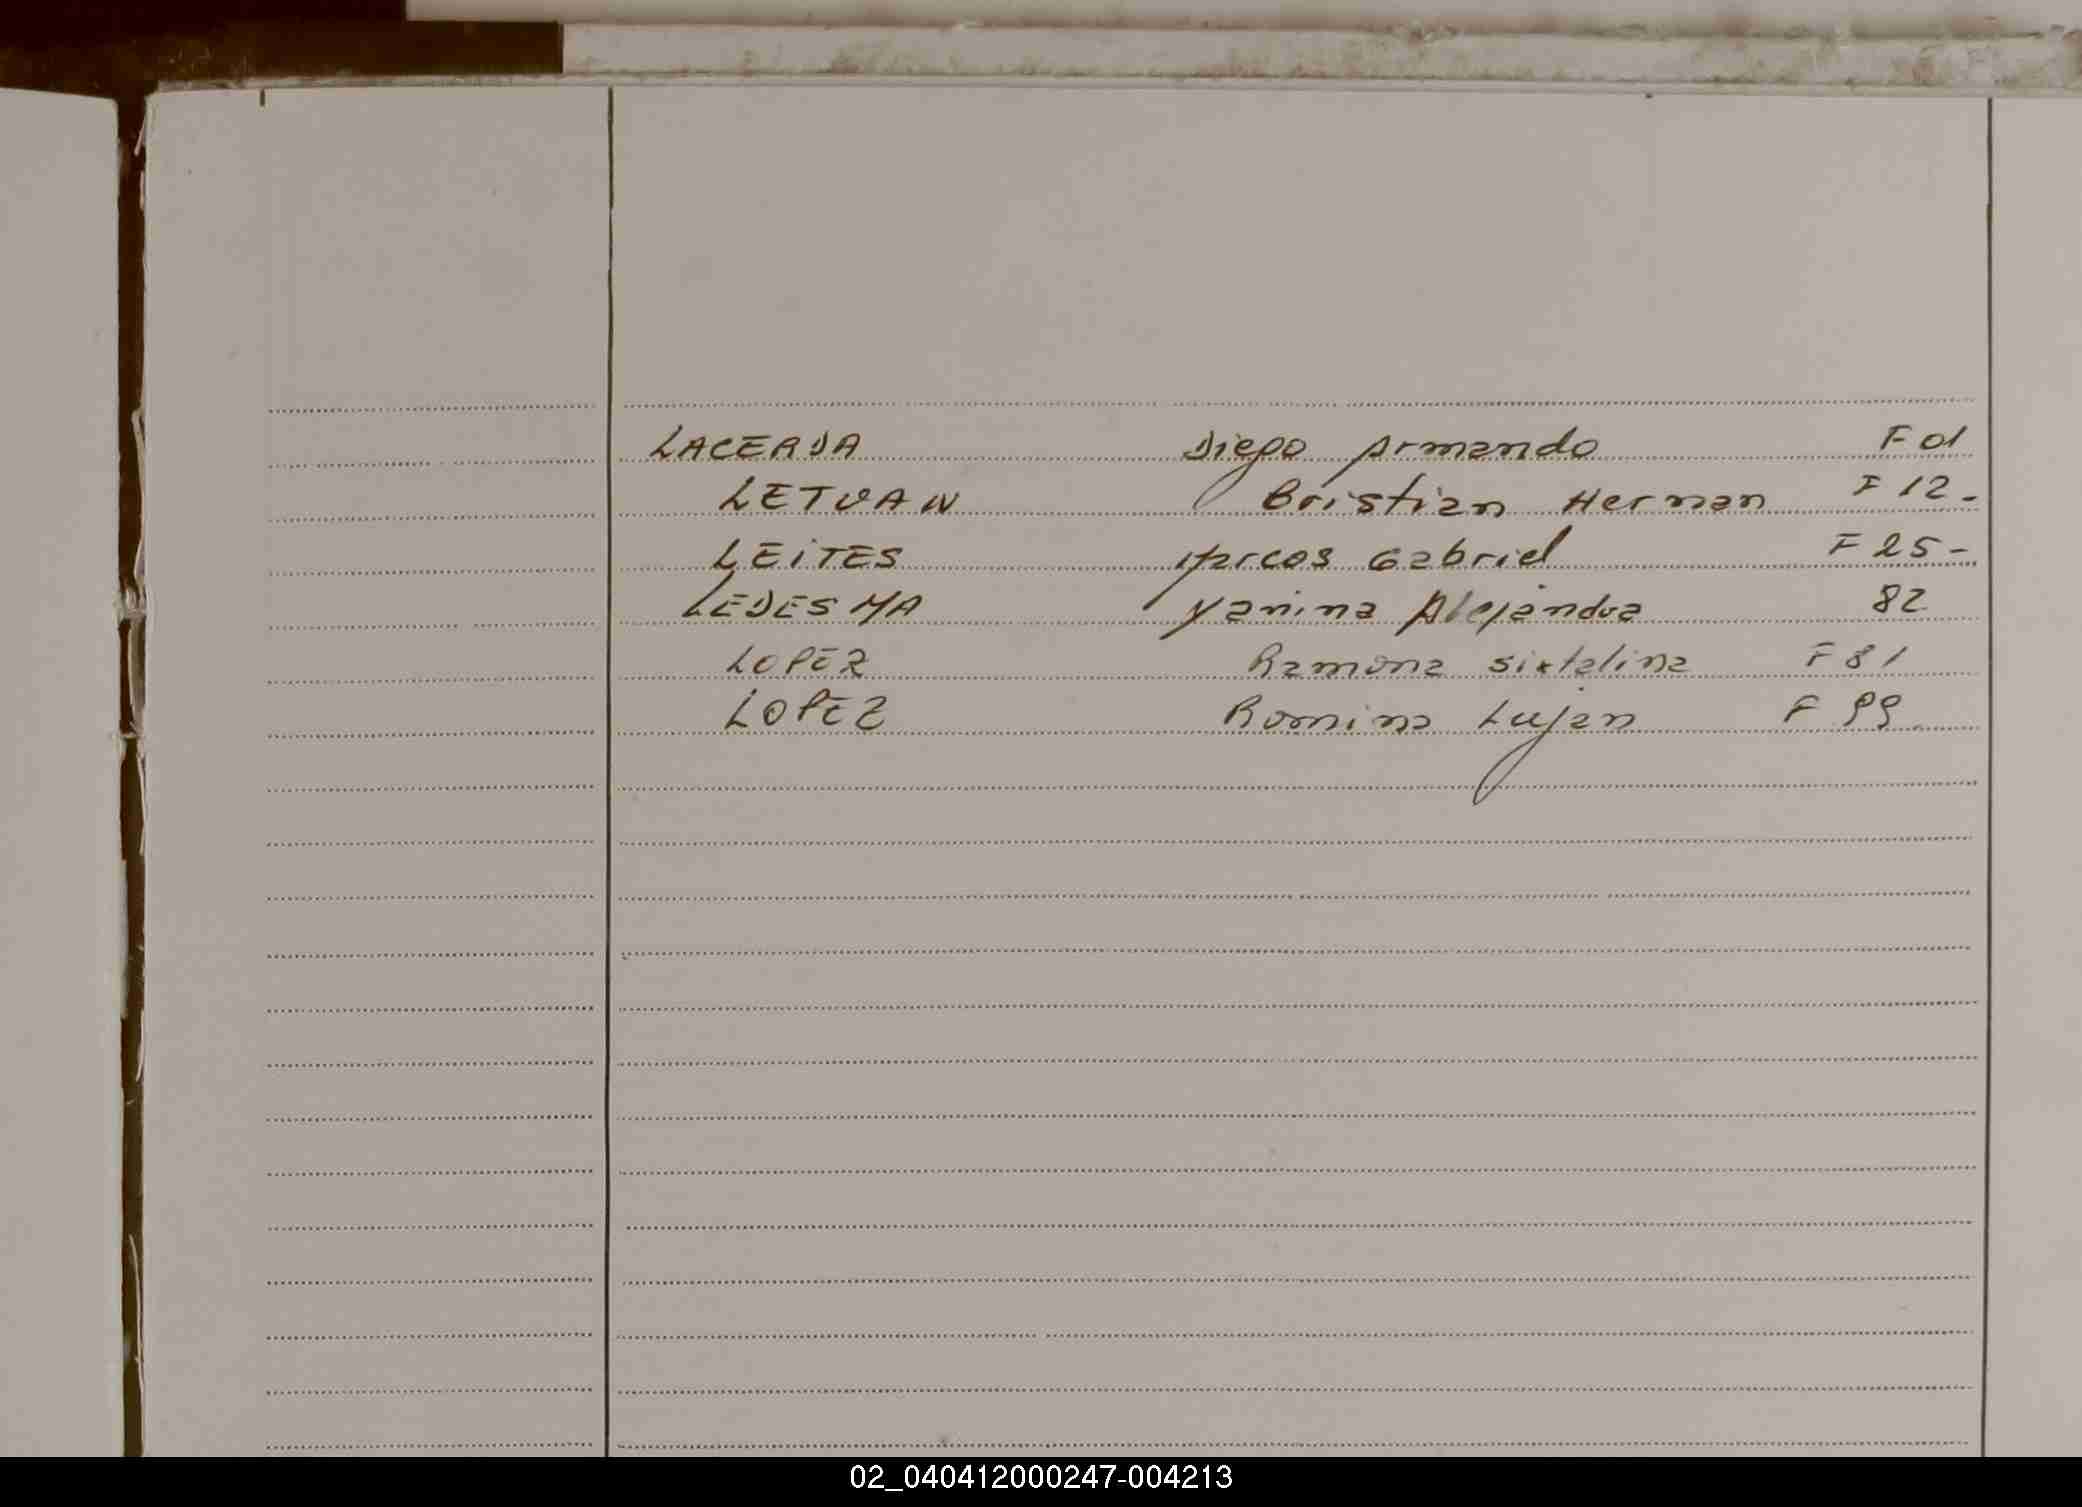 LACERDA Diego Armando F 01
LETVAN Cristian Hernan F 12-
LEITES Marcos Gabriel F 25-
LEDESMA Yanina Alejandra 82
LOPEZ Ramona Sixtalina F 81
LOPEZ Romina Lujan F 99
02_040412000247-004213